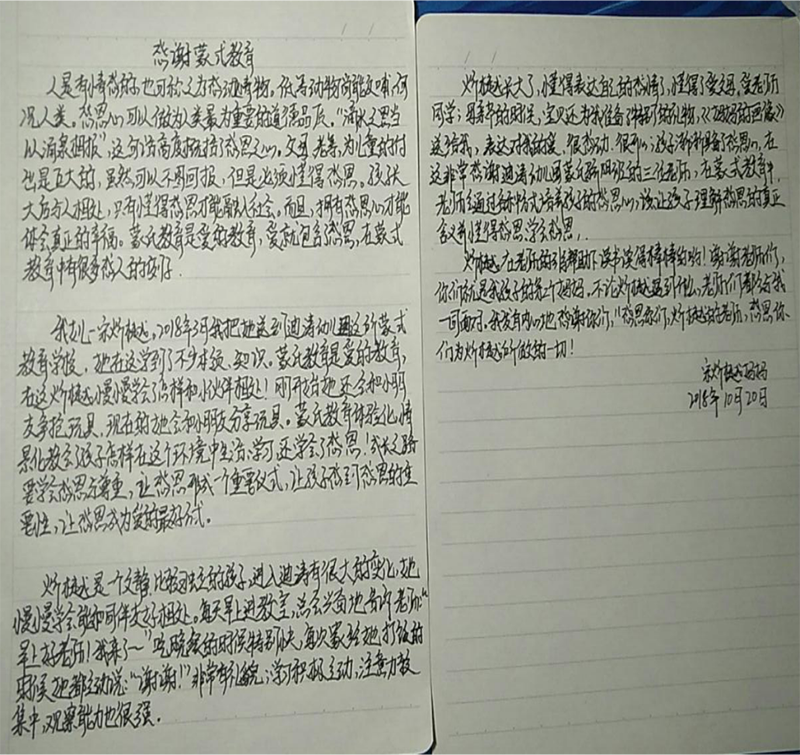 感谢蒙式教育
人是有情感的也可称之为感动动物。低等动物尚能反哺,何
况人类。感恩心可以做为人类最为重要的道德品质。"滴水之恩当
以涌泉相报",这句话高度概括了感恩之心。父母、老师,为儿童的付出
也是巨大的,虽然可以不图回报,但是必须懂得感恩。孩子长
大后与人相处,只有懂得感恩才能融入社会。而且,拥有感恩心才能
体会真正的幸福。蒙氏教育是爱的教育,爱就包含感恩,在蒙式
教育中有很多感人的例子.
我女儿一宋烨樾,2018年3月我把她送到迪涛幼儿园这所蒙式
教育学校,她在这学到了不少本领、知识。蒙氏教育是爱的教育,
在这烨樾慢慢学会了怎样和小伙伴相处!刚开始她还会和小朋
友争抢玩具,现在的她会和小朋友分享玩具。蒙氏教育体验化、情
景化教会了孩子怎样在这个环境中生活、学习,还学会了感恩!成长之路
要学会感恩与尊重,让感恩形成一个重要仪式,让孩子感到感恩的重
要性,让感恩成为爱的最好方式.
烨樾是一个文静,比较独立的孩子,进入迪涛有很大的变化,她
慢慢学会能和同伴友好相处。每天早上进教室,总会兴奋地告诉老师"
早上好老师!我来了~"吃晚餐的时候特别快,每次
时候她都主动说:"谢谢!"非常有礼貌;学习积极主动,注意力较
集中,观察能力也很强.
烨樾长大了,懂得表达自己的感情了,懂得了爱父母、爱老师
同学;母亲节的时候,宝贝还为我准备了特别的礼物,《妈妈的画像》
送给我,表达对我的爱。很感动、很开心;孩子渐渐具备了感恩心,在
这非常感谢迪涛幼儿园蒙班的三位老师,在蒙式教育中,
老师们通过各种方式培养孩子的感恩心,该让孩子理解感恩的真正
含义和懂得感恩、学会感恩,
烨樾在老师的帮助下读书读得棒棒的哟!谢谢老师们,
你们就是我孩子的第二个妈妈,不论烨樾遇到什么,老师们都会和我
一同面对。我发自内心地感谢你们,"感恩你们,烨樾的老师,感恩你
们为烨樾所做的一切!
宋烨樾妈妈
2018年10月20日